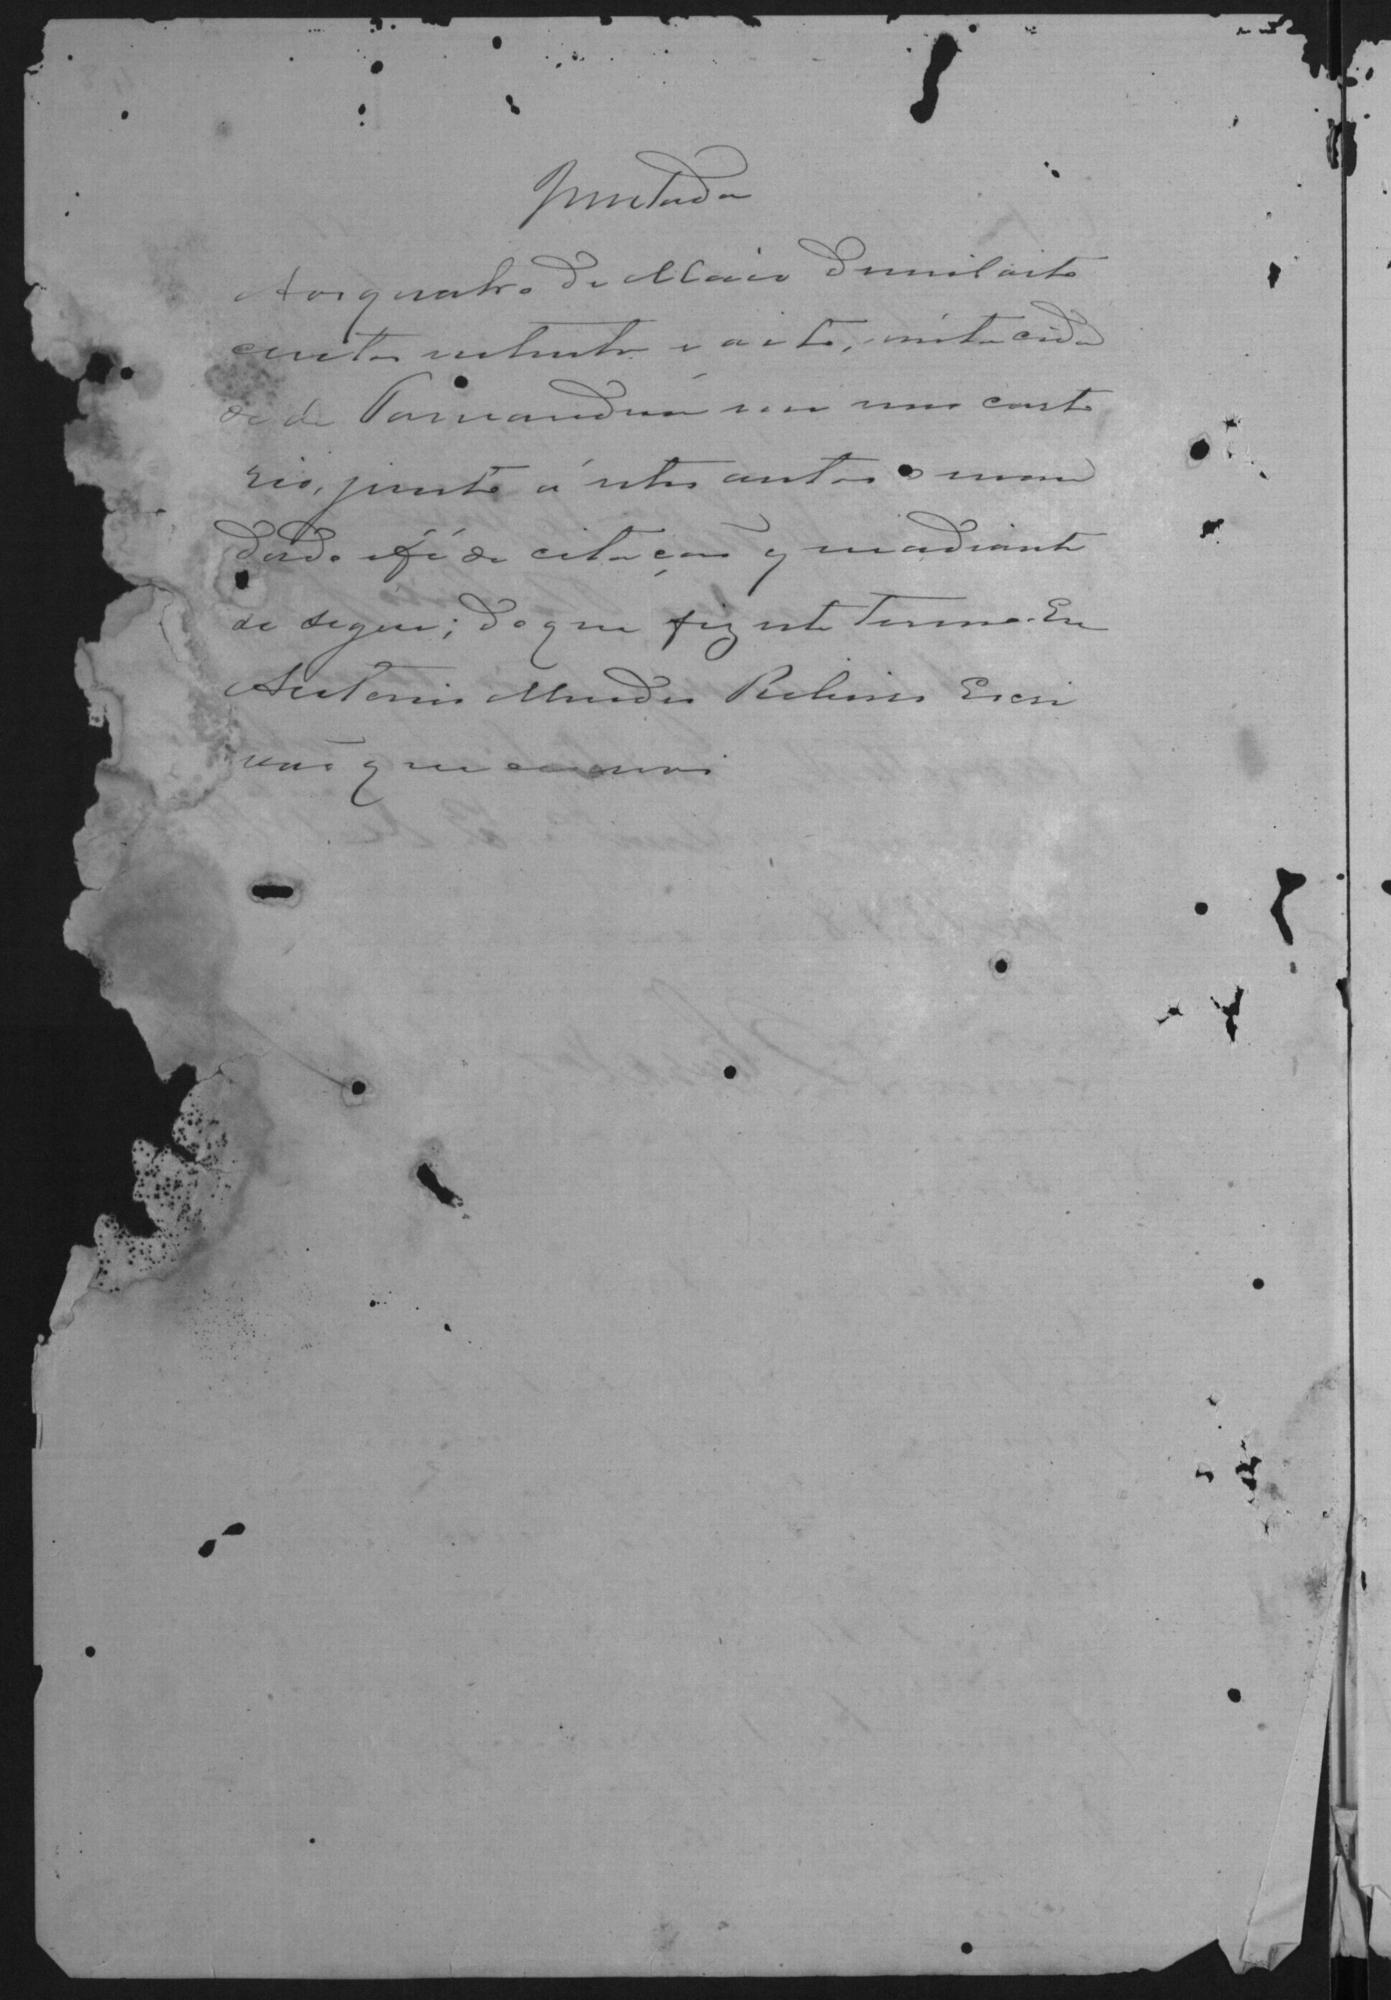 Juntada
Aos quatro de Maio de mil oito
centos setenta e oito, n'esta cida
de de Parnanguá em meu carto
rio, junto á estes autos o man
dado e fé de citação que adiante
se segue; do que fiz este termo. Eu
Antonio Mendes Ribeiro Escri
vão que escrevi